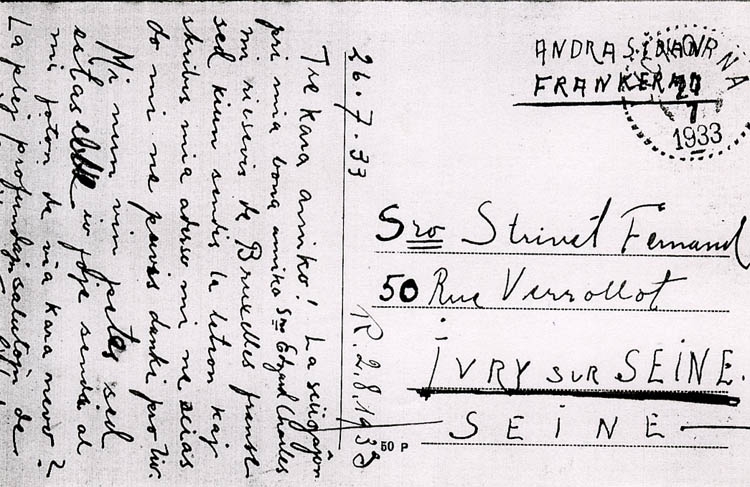 26.7.33
Tre kara amiko! La sciigojn
pri mia bona amiko Sro Edgard Charles
mi ricevis de Bruxelles franse
sed kiun sendis la leteron kaj
skribis mia adreso mi ne scias
do mi ne povas danki pro tio.
Mi nun vin petas sed
estas eble io foje sendi al
mi foton de via kara nevo?
La plej profundajn salutojn de
R. 2.8.1933
FRANKERAD
27
7
1933
Sro Strivet Fernand
50 Rue Verrollot
IVRY SUR SEINE.
SEINE
50 P